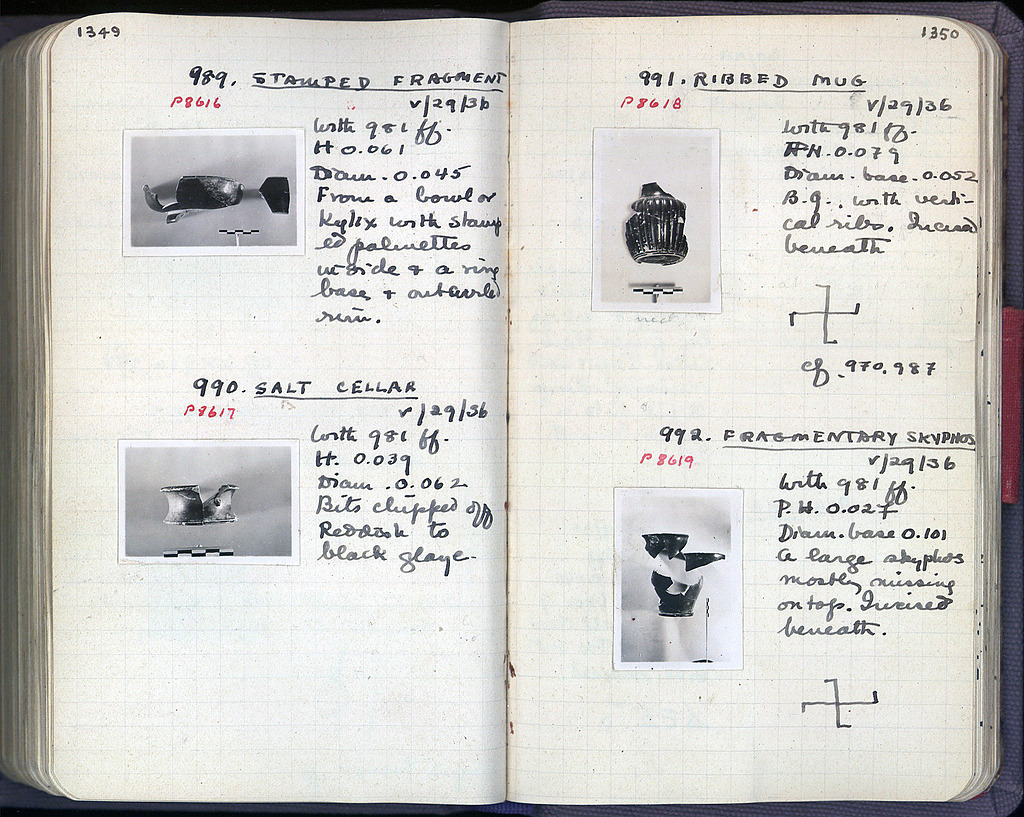 1349
989. STAMPED FRAGMENT
P8616
V/29/36
With 981 ff.
H 0.061
Diam. 0.045
From a bowl or
Kylix with stamp
ed palmettes
inside & a ring
base & outcurled
rim.
990. SALT CELLAR
P8617
V/29/36
With 981 ff.
H. 0.039
Diam. 0.062
Bits chipped off
Reddish to
black glaze.
1350
991. RIBBED MUG
P8618
V/29/36
With 981 ff.
H. 0.079
Diam. base. 0.052
B.g., with verti-
cal ribs. Incised
beneath
cf. 970, 987
992. FRAGMENTARY SKYPHOS
P8619
V/29/36
With 981 ff.
P.H. 0.027
Diam. base 0.101
A large skyphos
mostly missing
on top. Incised
beneath.